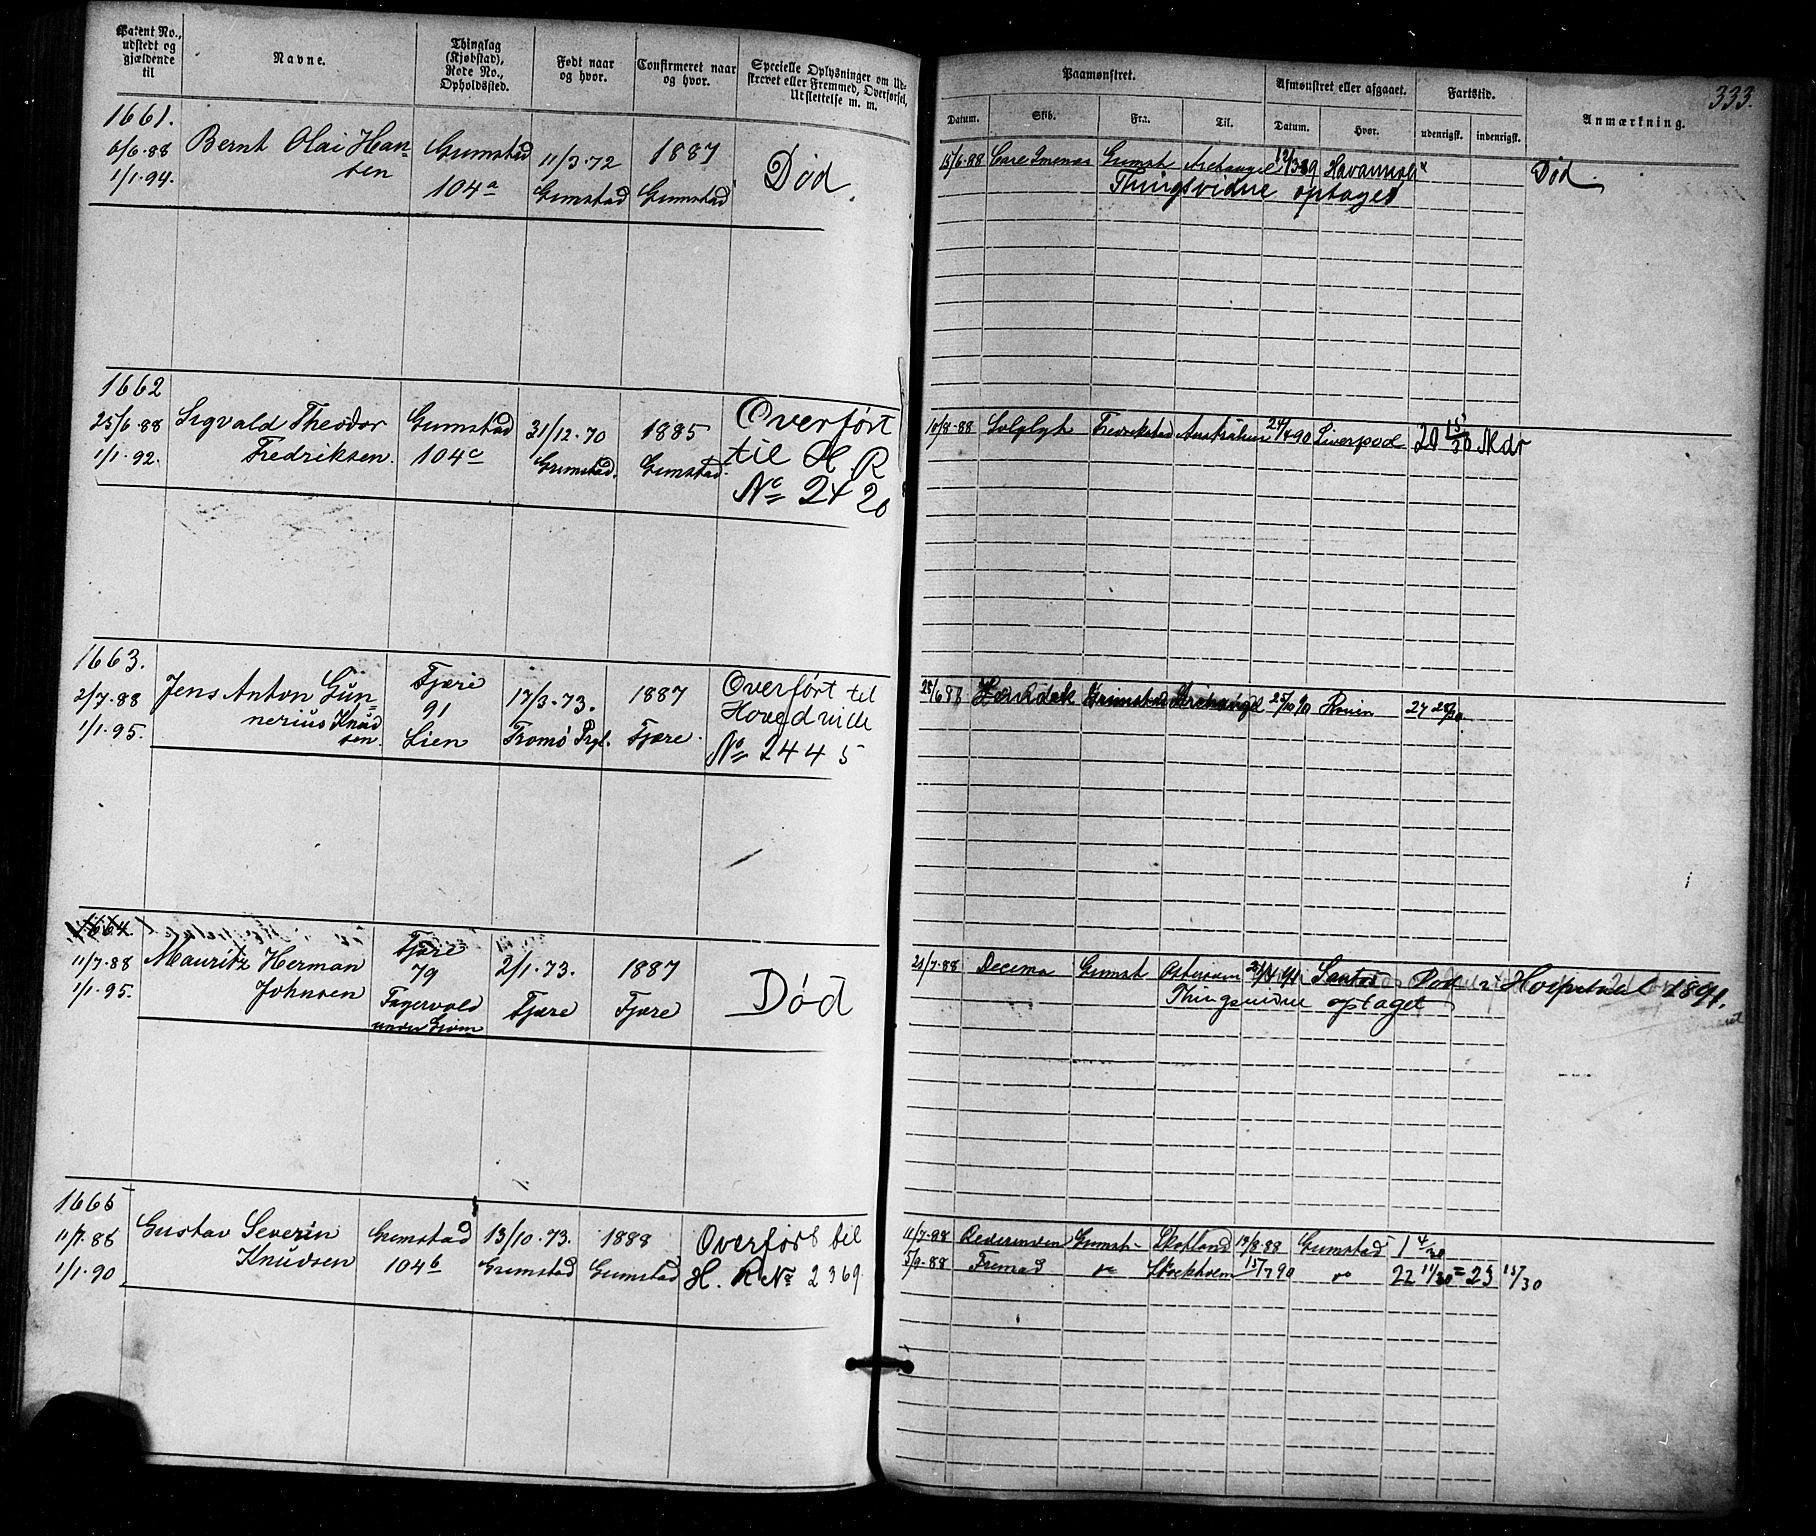 Patent No., udstedt og gjældende til
Navne.
Thinglag (Kjøbstad), Rode No., Opholdssted.
Født naar og hvor.
Confirmeret naar og hvor.
Specielle Oplysninger om Udskrevet eller Fremmed, Overførsel, Udslettelse m. m.
Paamønstret.
Afmønstret eller afgaaet.
Fartstid.
Anmærkning.
333.
Datum.
Skib.
Fra.
Til.
Datum.
Hvor.
udenrigsk.
indenrigsk.
1661.
6/6·88
1/1·94.
Bernt Olai Han-
sen
Grimstad
104a
11/3·72
Grimstad
1887
Grimstad
Død
15/6·88 Grimst. Archangel Havanna
Thingsvidne optaget
Død
1662
25/6·88
1/1·92.
Sigvald Theodor
Fredriksen.
Grimstad
104c
31/12·70
Grimstad.
1885
Grimstad.
Overført
til H R
No 2420
10/8·88 Solglyt Fredrikstad Australien 24/4 90 Liverpool 20 15/30 Mdr
1663.
2/7·88
1/1·95.
Jens Anton Gun-
nerius Knud
sen.
Fjære
91
Lien
17/3·73.
Tromø Prgl.
1887
Fjære.
Overført til
Hovedrulle
No 2445
28/6 88 Grimstad Archangel 25/10 90 27 28/30
1664.
11/7·88
1/1·95.
Mauritz Herman
Johnsen
Fjære
79
Fagervold
under Grom
2/1·73.
Fjære
1887
Fjære
Død
21/7·88 Decima Grimst Santos Død i Hospital 1891.
Thingsvidne optaget
1665
11/7·88
1/1·90
Gustav Severin
Knudsen
Grimstad
104b
13/10·73.
Grimstad
1888
Grimstad
Overført til
H. R No 2369.
11/7·88 Grimst. Skotland 19/8·88 Grimstad 1 4/30
5/9·88 Fremad Stockholm 15/7 90 22 11/30 = 23 15/30